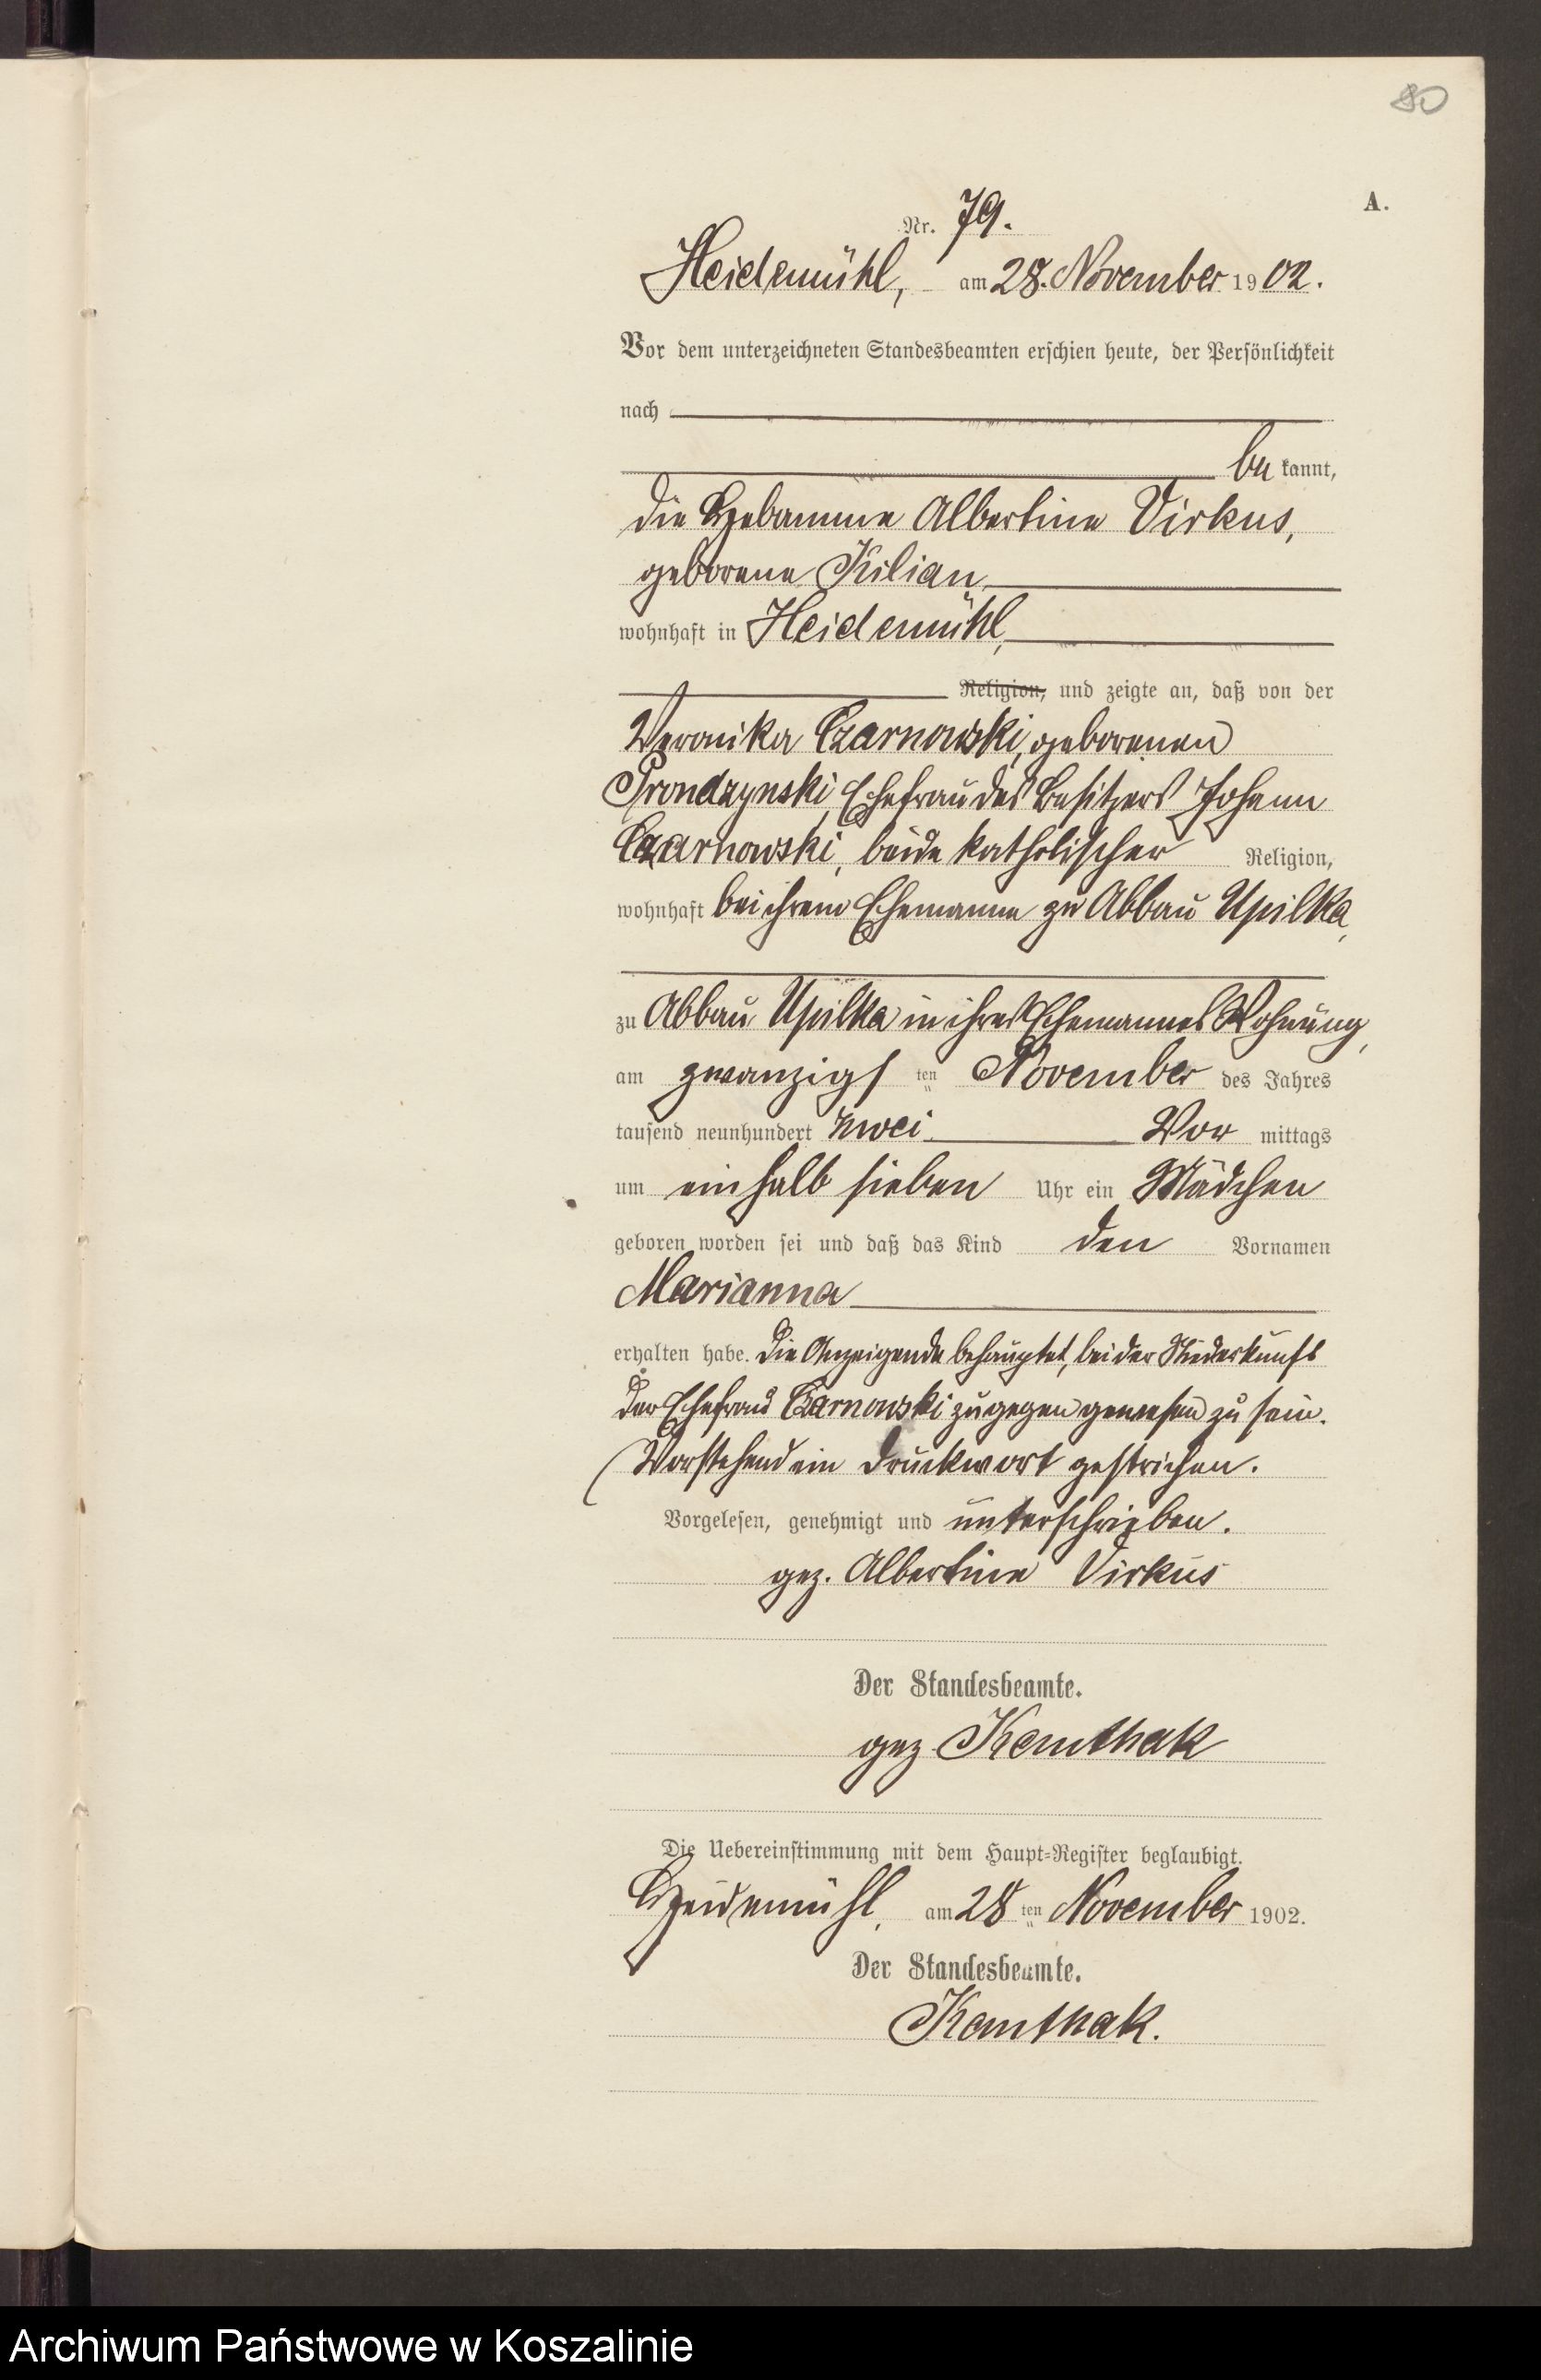 80
A.
Nr. 79.
Heidemühl, am 28. November 1902.
Vor dem unterzeichneten Standesbeamten erschien heute, der Persönlichkeit
nach
be kannt,
die Hebamme Albertine Virkus,
geborene Kilian
wohnhaft in Heidemühl,
Religion, und zeigte an, daß von der
Veronika Czarnowski, geborenen
Prondzynski, Ehefrau des Besitzers Johann
Czarnowski, beide katholischer Religion,
wohnhaft bei ihrem Ehemanne zu Abbau Upilka,
zu Abbau Upilka in ihres Ehemannes Wohnung,
am zwanzigs ten November des Jahres
tausend neunhundert zwei Vor mittags
um ein halb sieben Uhr ein Mädchen
geboren worden sei und daß das Kind den Vornamen
Marianna
erhalten habe. Die Anzeigende behauptet, bei der Niederkunft
der Ehefrau Czarnowski zugegen gewesen zu sein.
(Vorstehend ein Druckwort gestrichen.
Vorgelesen, genehmigt und unterschrieben.
gez. Albertine Virkus
Der Standesbeamte.
gez. Kemthak
Die Uebereinstimmung mit dem Haupt-Register beglaubigt.
Heidemühl, am 28 ten November 1902.
Der Standesbeamte.
Kemthak.
Archiwum Państwowe w Koszalinie